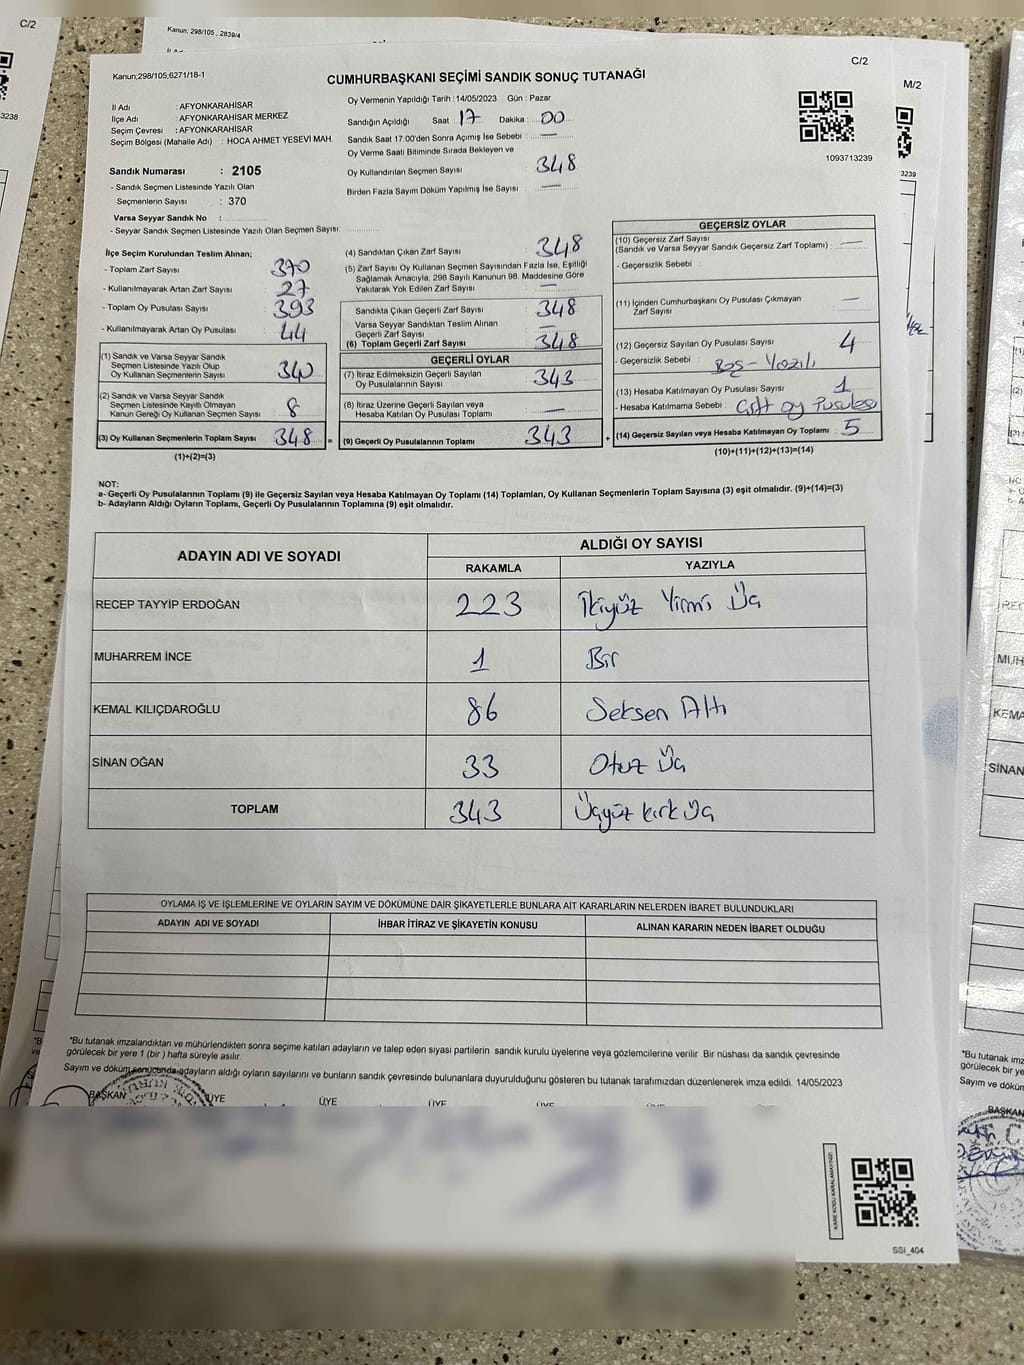 C/2
Kanun; 298/105 , 2839/4
3238
Kanun;298/105;6271/18-1
CUMHURBAŞKANI SEÇİMİ SANDIK SONUÇ TUTANAĞI
C/2
M/2
İl Adı : AFYONKARAHİSAR
İlçe Adı : AFYONKARAHİSAR MERKEZ
Seçim Çevresi : AFYONKARAHİSAR
Seçim Bölgesi (Mahalle Adı) : HOCA AHMET YESEVİ MAH.
Oy Vermenin Yapıldığı Tarih :14/05/2023 Gün : Pazar
Sandığın Açıldığı Saat 17 Dakika : 00
Sandık Saat 17.00'den Sonra Açımış İse Sebebi : —
Oy Verme Saati Bitiminde Sırada Bekleyen ve
Oy Kullandırılan Seçmen Sayısı : 348
Birden Fazla Sayım Döküm Yapılmış İse Sayısı : —
1093713239
3239
Sandık Numarası : 2105
- Sandık Seçmen Listesinde Yazılı Olan
Seçmenlerin Sayısı : 370
Varsa Seyyar Sandık No :
- Seyyar Sandık Seçmen Listesinde Yazılı Olan Seçmen Sayısı:
İlçe Seçim Kurulundan Teslim Alınan;
- Toplam Zarf Sayısı : 370
- Kullanılmayarak Artan Zarf Sayısı : 27
- Toplam Oy Pusulası Sayısı : 393
- Kullanılmayarak Artan Oy Pusulası : 44
(1) Sandık ve Varsa Seyyar Sandık
Seçmen Listesinde Yazılı Olup
Oy Kullanan Seçmenlerin Sayısı : 340
(2) Sandık ve Varsa Seyyar Sandık
Seçmen Listesinde Kayıtlı Olmayan
Kanun Gereği Oy Kullanan Seçmen Sayısı : 8
(3) Oy Kullanan Seçmenlerin Toplam Sayısı : 348 =
(1)+(2)=(3)
(4) Sandıktan Çıkan Zarf Sayısı : 348
(5) Zarf Sayısı Oy Kullanan Seçmen Sayısından Fazla İse, Eşitliği
Sağlamak Amacıyla, 298 Sayılı Kanunun 98. Maddesine Göre
Yakılarak Yok Edilen Zarf Sayısı : —
Sandıkta Çıkan Geçerli Zarf Sayısı : 348
Varsa Seyyar Sandıktan Teslim Alınan
Geçerli Zarf Sayısı : —
(6) Toplam Geçerli Zarf Sayısı : 348
GEÇERLİ OYLAR
(7) İtiraz Edilmeksizin Geçerli Sayılan
Oy Pusulalarının Sayısı : 343
(8) İtiraz Üzerine Geçerli Sayılan veya
Hesaba Katılan Oy Pusulası Toplamı : —
(9) Geçerli Oy Pusulalarının Toplamı : 343 +
GEÇERSİZ OYLAR
(10) Geçersiz Zarf Sayısı
(Sandık ve Varsa Seyyar Sandık Geçersiz Zarf Toplamı) : —
- Geçersizlik Sebebi :
(11) İçinden Cumhurbaşkanı Oy Pusulası Çıkmayan
Zarf Sayısı : —
(12) Geçersiz Sayılan Oy Pusulası Sayısı : 4
- Geçersizlik Sebebi : Boş - Yazılı
(13) Hesaba Katılmayan Oy Pusulası Sayısı : 1
- Hesaba Katılmama Sebebi : Çift oy Pusulası
(14) Geçersiz Sayılan veya Hesaba Katılmayan Oy Toplamı : 5
(10)+(11)+(12)+(13)=(14)
NOT:
a- Geçerli Oy Pusulalarının Toplamı (9) ile Geçersiz Sayılan veya Hesaba Katılmayan Oy Toplamı (14) Toplamları, Oy Kullanan Seçmenlerin Toplam Sayısına (3) eşit olmalıdır. (9)+(14)=(3)
b- Adayların Aldığı Oyların Toplamı, Geçerli Oy Pusulalarının Toplamına (9) eşit olmalıdır.
ADAYIN ADI VE SOYADI ALDIĞI OY SAYISI
RAKAMLA YAZIYLA
RECEP TAYYİP ERDOĞAN 223 İkiyüz Yirmi Üç
MUHARREM İNCE 1 Bir
KEMAL KILIÇDAROĞLU 86 Seksen Altı
SİNAN OĞAN 33 Otuz Üç
TOPLAM 343 Üçyüz kırk üç
OYLAMA İŞ VE İŞLEMLERİNE VE OYLARIN SAYIM VE DÖKÜMÜNE DAİR ŞİKAYETLERLE BUNLARA AİT KARARLARIN NELERDEN İBARET BULUNDUKLARI
ADAYIN ADI VE SOYADI İHBAR İTİRAZ VE ŞİKAYETİN KONUSU ALINAN KARARIN NEDEN İBARET OLDUĞU
*Bu tutanak imzalandıktan ve mühürlendikten sonra seçime katılan adayların ve talep eden siyasi partilerin sandık kurulu üyelerine veya gözlemcilerine verilir. Bir nüshası da sandık çevresinde
görülecek bir yere 1 (bir ) hafta süreyle asılır.
Sayım ve döküm sonucunda adayların aldığı oyların sayılarını ve bunların sandık çevresinde bulunanlara duyurulduğunu gösteren bu tutanak tarafımızdan düzenlenerek imza edildi. 14/05/2023
BAŞKAN ÜYE ÜYE ÜYE ÜYE
KARE KODU KARALAMAYINIZ!
SSI_404
MUH
KEMA
SİNAN
*Bu tutanak imz
görülecek bir ye
Sayım ve döküm
BAŞKAN